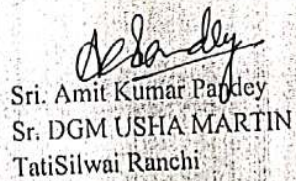 Sri. Amit Kumar Pandey
Sr. DGM USHA MARTIN
TatiSilwai Ranchi